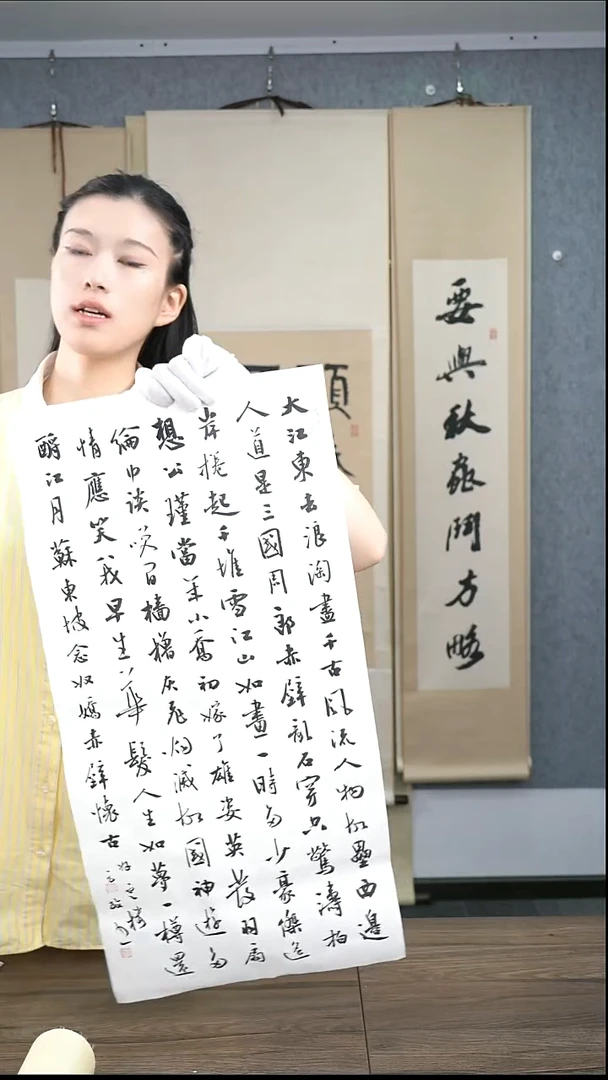 大江東去浪淘盡千古風流人物故壘西邊
人道是三國周郎赤壁亂石穿空驚濤拍
岸捲起千堆雪江山如畫一時多少豪傑遥
想公瑾當年小喬初嫁了雄姿英發羽扇
綸巾談笑間檣櫓灰飛烟滅故國神遊多
情應笑我早生華髮人生如夢一樽還
酹江月蘇東坡念奴嬌赤壁懷古
與秋鬪方略